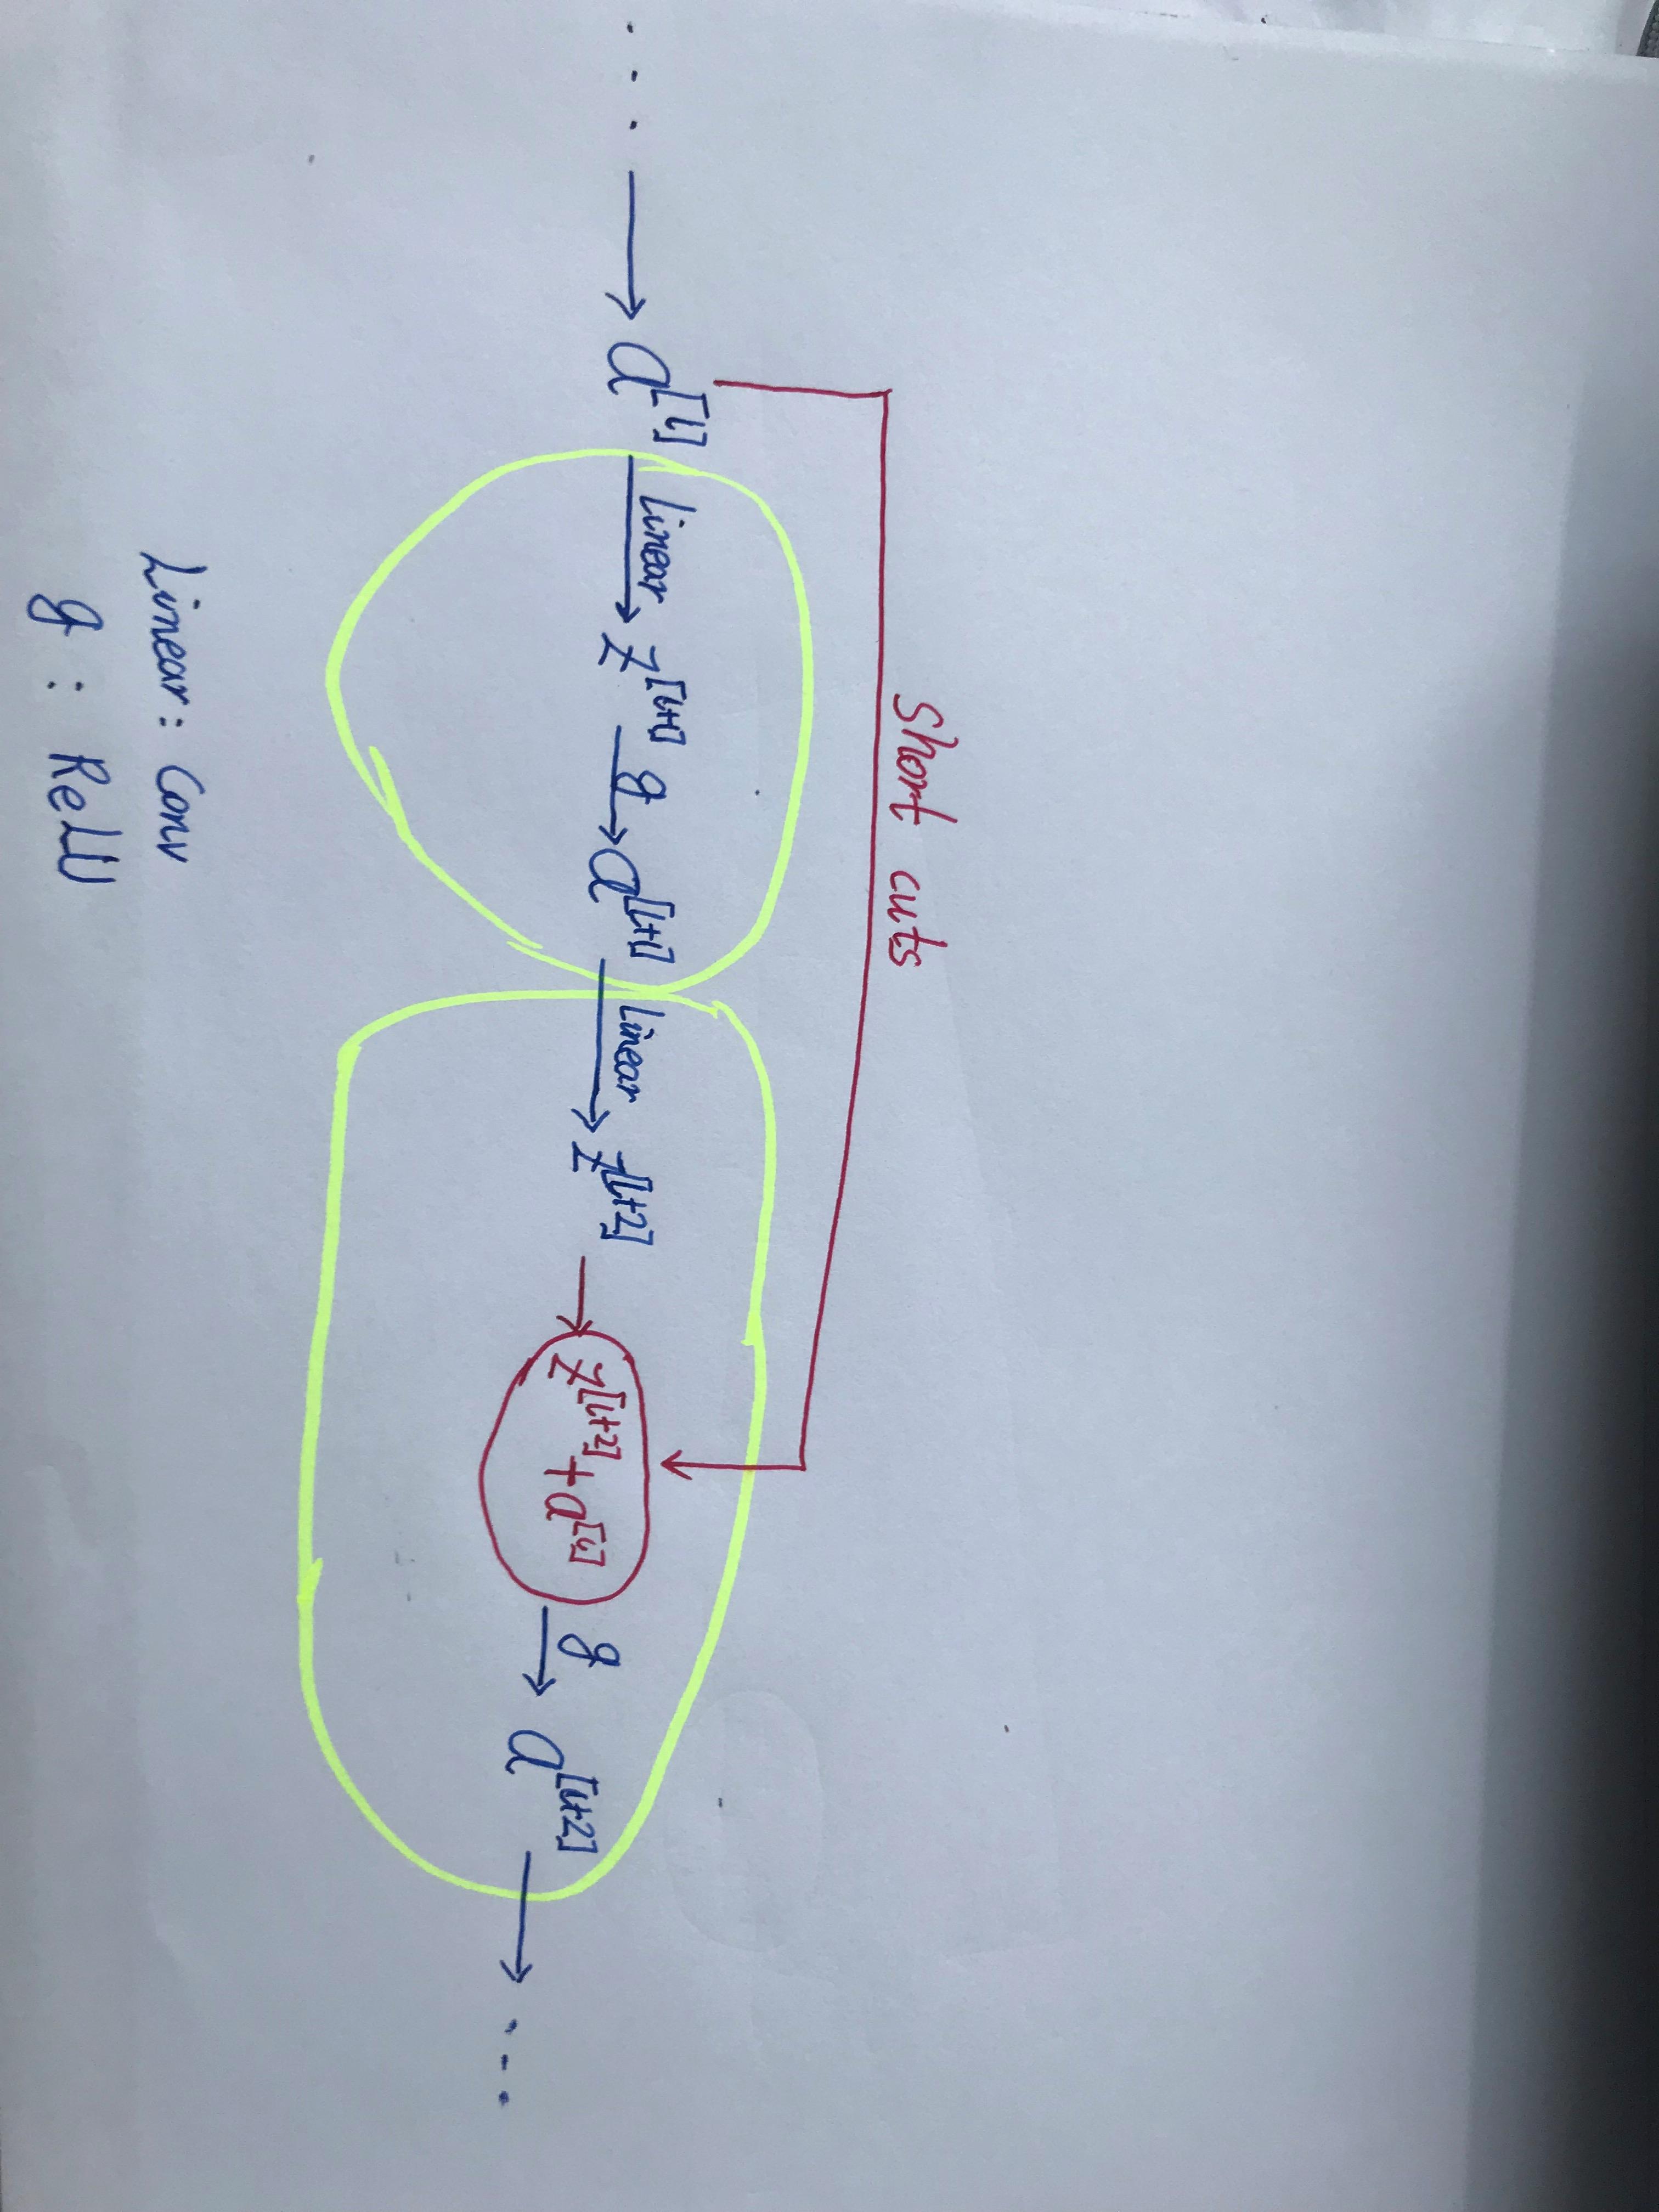 short cuts
... → a^[l] Linear → z^[l+1] g → a^[l+1] Linear → z^[l+2] → z^[l+2]+a^[l] g → a^[l+2] → ...
Linear: Conv
g : ReLU